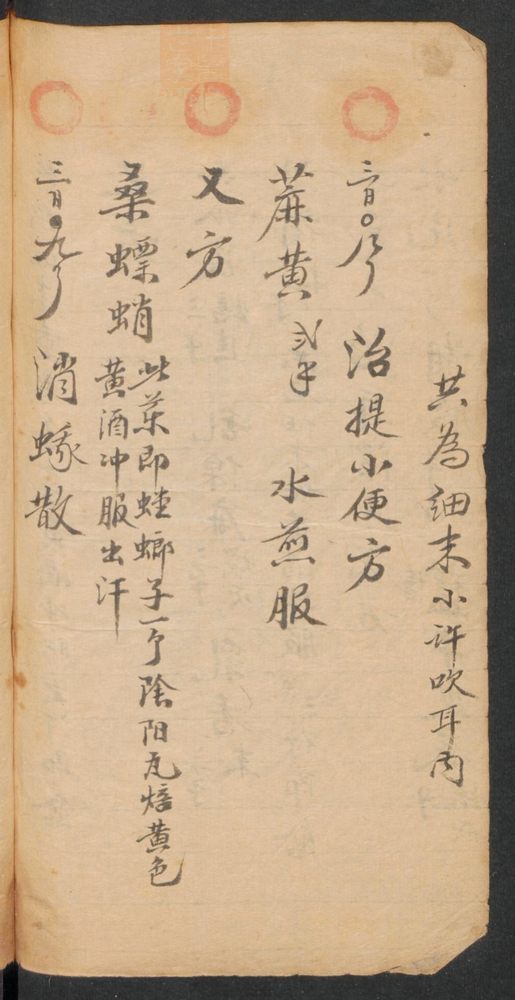 共為細末小許吹耳内
三百〇八 治提小便方
蔴黄 弍手 水煎服
又方
桑螵蛸 此薬即螳螂子一个陰阳瓦焙黄色
黄酒冲服出汗
三百〇九 消蛾散